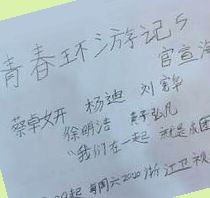 青春环游记5
官宣海
蔡卓妍 杨迪 刘宪华
徐明浩 黄子弘凡
“我们在一起 就是
起 每周六2020 浙江卫视